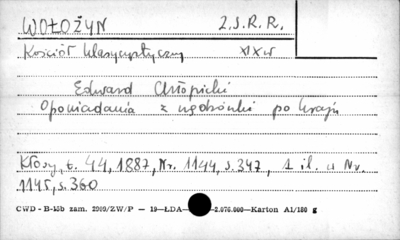 WOŁOŻYN Z.S.R.R.
Kościół klasycystyczny XIX w
Edward Chłopicki
Opowiadania z wędrówki po kraju
Kłosy, t. 44, 1887, Nr. 1144, s. 347, 1 il. w Nr.
1145, s. 360
CWD - B-15b zam. 2909/ZW/P — 19—ŁDA— —2.076.000—Karton A1/180 g